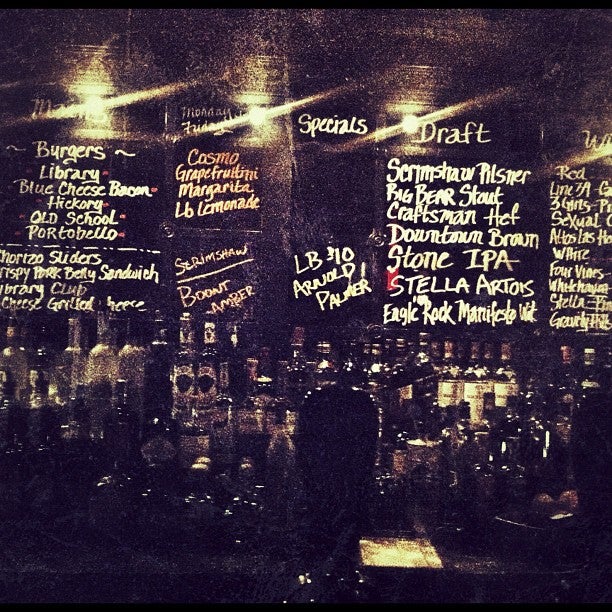 ~ Burgers ~
Library
Blue Cheese Bacon
Hickory
OLD School
PORTObello
Chorizo Sliders
Crispy PORK Belly Sandwich
Library Club
Cheese Grilled Cheese
Monday
Friday
Cosmo
Grapefruitini
Margarita
Lb Lemonade
SCRIMSHAW
BOONT
AMBER
Specials
LB $10
ARNOLD
PALMER!
Draft
Scrimshaw Pilsner
Big BEAR Stout
Craftsman Hef
Downtown Brown
Stone IPA
STELLA ARTOIS
Eagle Rock Manifesto Wit
Red
Line 39
3 Girls
Sexual
Altos Las
White
Four Vines
Whitehaven
Stella